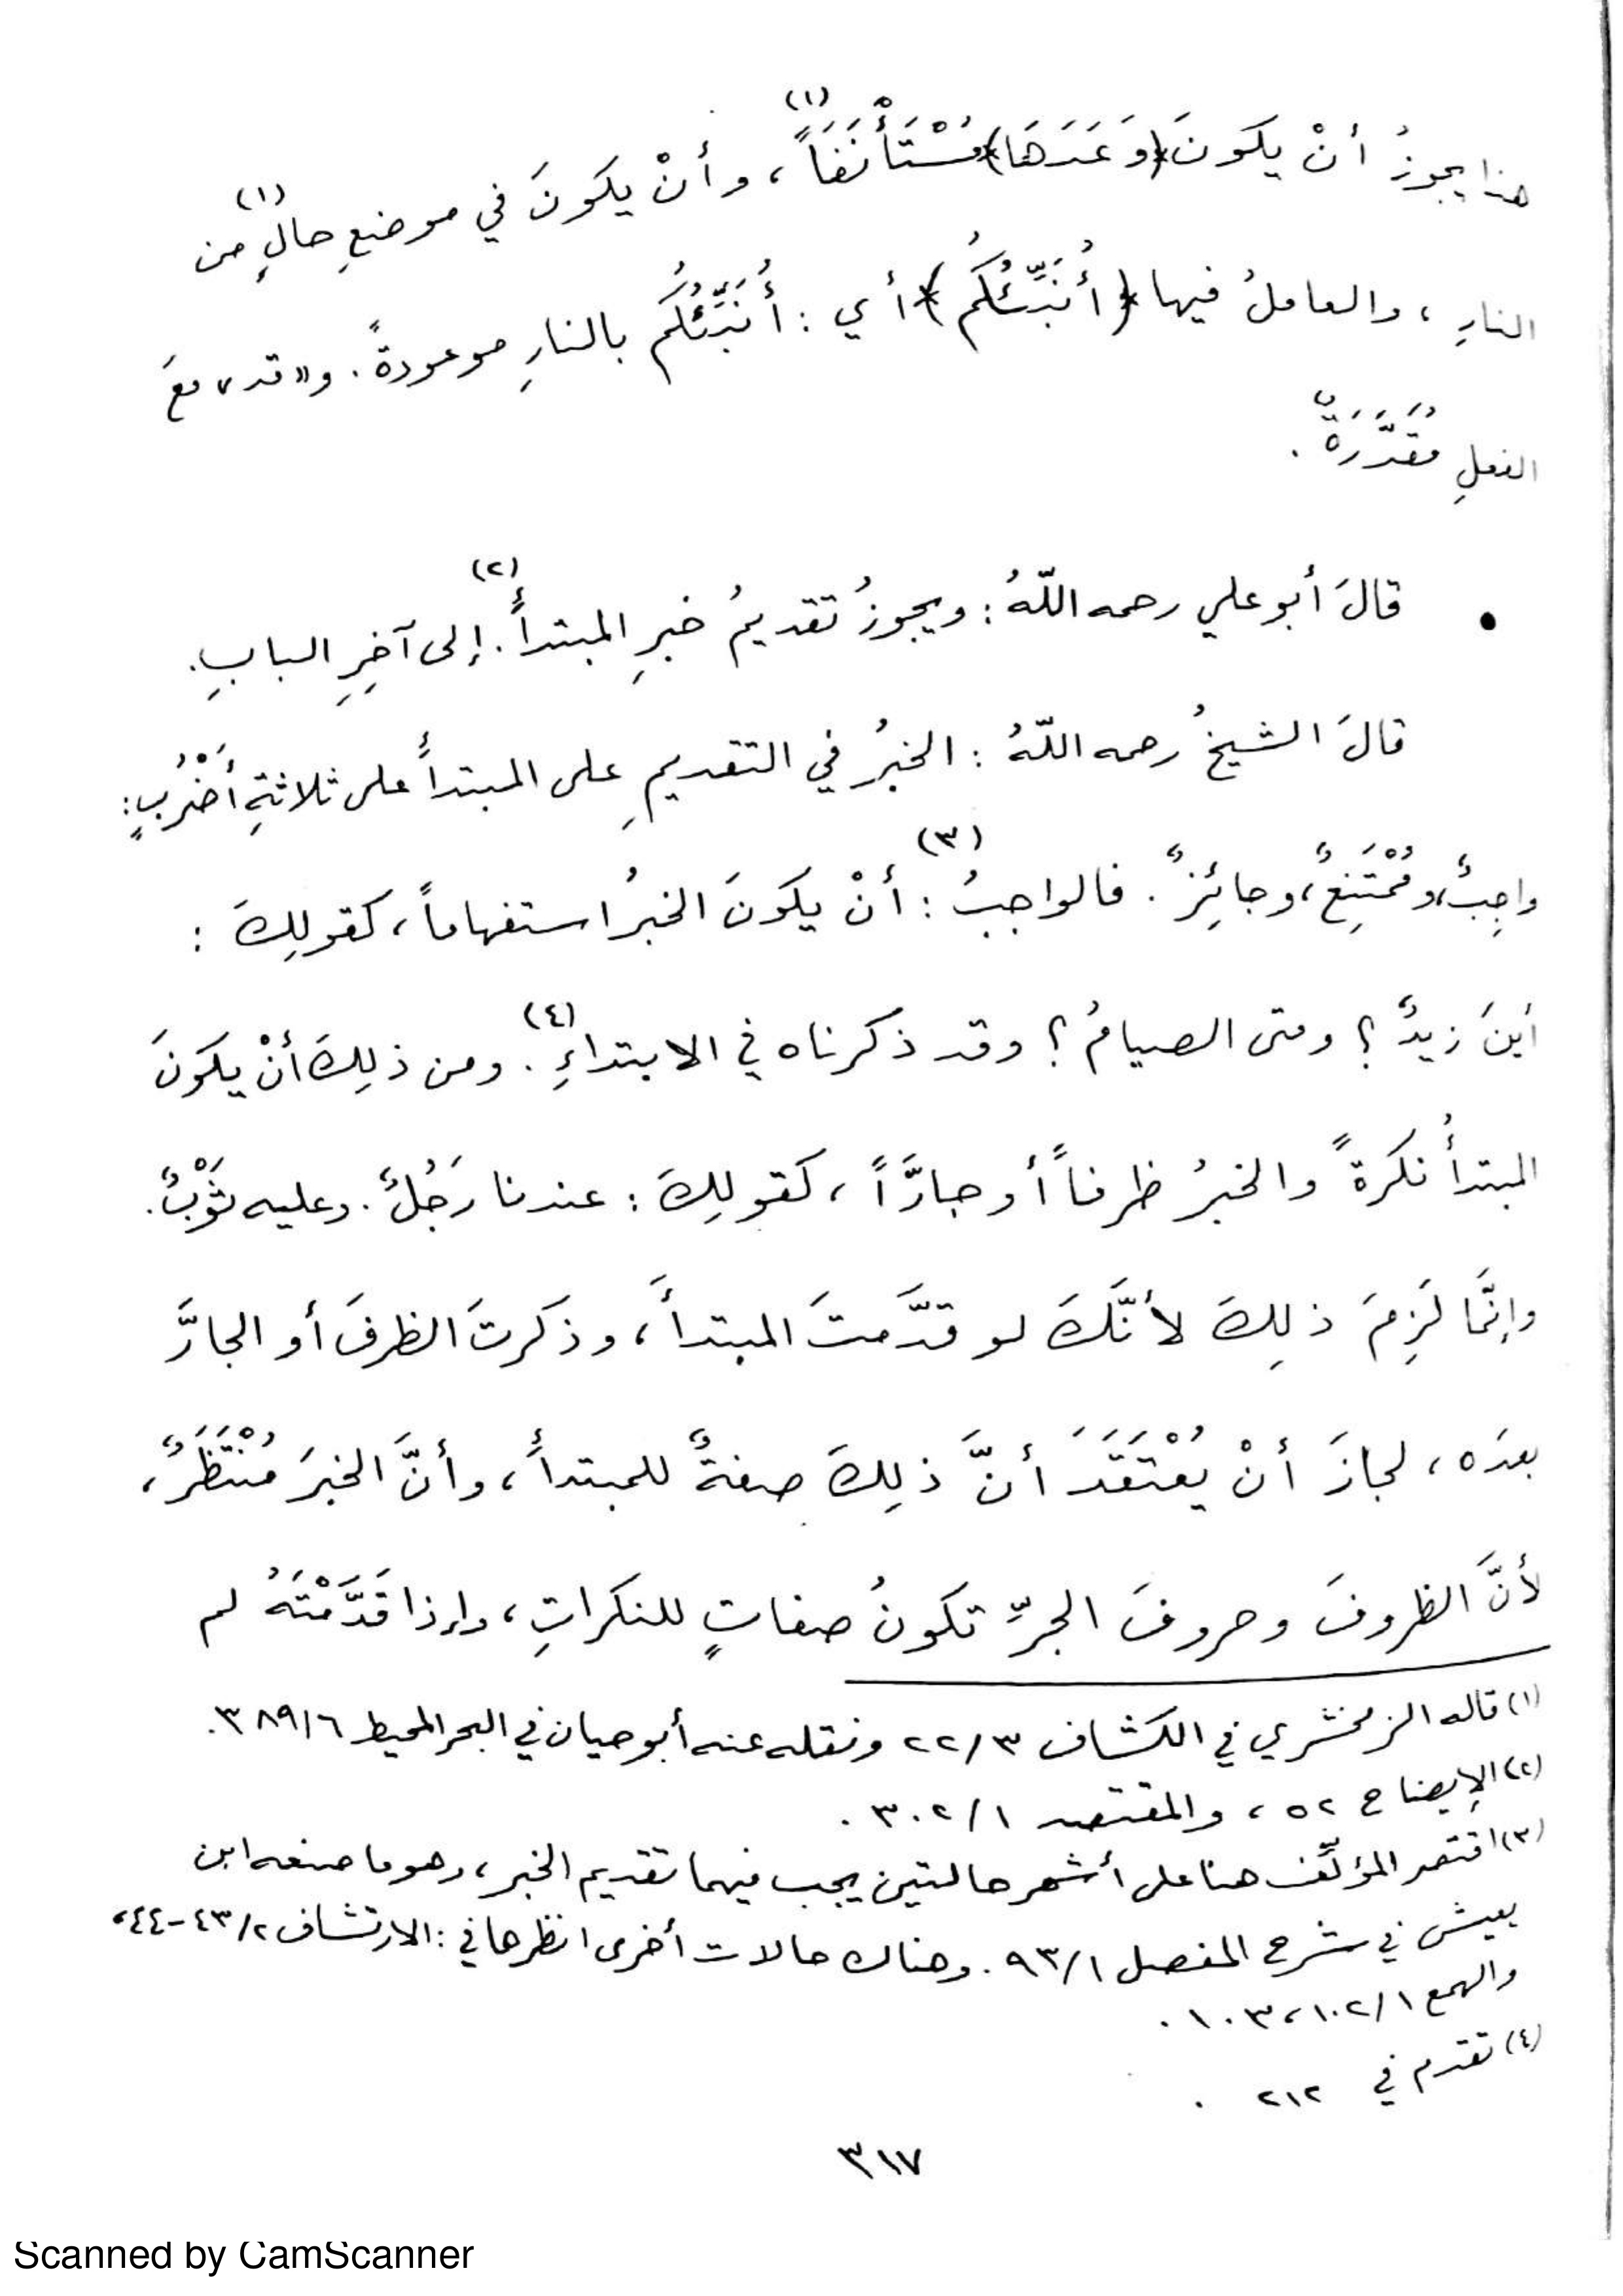 هذا يجوزُ أنْ يكونَ ﴿وَعَدَهَا﴾ مُسْتَأْنَفَاً (١)، وأنْ يكونَ في موضعِ حالٍ (١) من
النارِ، والعاملُ فيها ﴿أُنَبِّئُكُمُ﴾ أي : أُنَبِّئُكُم بالنارِ موعودةً. و«قد» معَ
الفعلِ مُقَدَّرَةٌ .
• قالَ أبو علي رحمه اللّهُ : ويجوزُ تقديمُ خبرِ المبتدأِ (٢). إلى آخِرِ البابِ.
قالَ الشيخُ رحمه اللّهُ : الخبرُ في التقديمِ على المبتدأ على ثلاثةِ أَضْرُبٍ :
واجِبٌ، ومُمْتَنِعٌ، وجائِزٌ. فالواجبُ (٣) : أنْ يكونَ الخبرُ استفهاماً، كقولِكَ :
أينَ زيدٌ ؟ ومتى الصيامُ ؟ وقد ذكرناه في الابتداءِ (٤). ومن ذلِكَ أنْ يكونَ
المبتدأُ نكرةً والخبرُ ظرفاً أو جارَّاً، كقولِكَ : عندنا رَجُلٌ. وعليه ثَوْبٌ.
وإنَّما لَزِمَ ذلِكَ لأنَّكَ لو قدَّمتَ المبتدأَ، وذكرتَ الظرفَ أو الجارَّ
بعدَه، لجازَ أنْ يُعْتَقَدَ أنَّ ذلِكَ صفةٌ للمبتدأ، وأنَّ الخبرَ مُنْتَظَرٌ،
لأنَّ الظروفَ وحروفَ الجرِّ تكونُ صفاتٍ للنكراتِ، وإذا قَدَّمْتَهُ لم
(١) قاله الزمخشري في الكشاف ٢٢/٣ ونقله عنه أبو حيان في البحر المحيط ٣٨٩/٦.
(٢) الإيضاح ٥٢ ، والمقتصد ٣٠٢/١ .
(٣) اقتصر المؤلِّف هنا على أشهر حالتين يجب فيهما تقديم الخبر، وهو ما صنعه ابن
يعيش في شرح المفصل ٩٣/١. وهناك حالات أخرى انظرها في : الارتشاف ٤٣/٢-٤٤،
والهمع ١٠٢/١، ١٠٣ .
(٤) تقدم في ٢١٢ .
٣١٧
Scanned by CamScanner